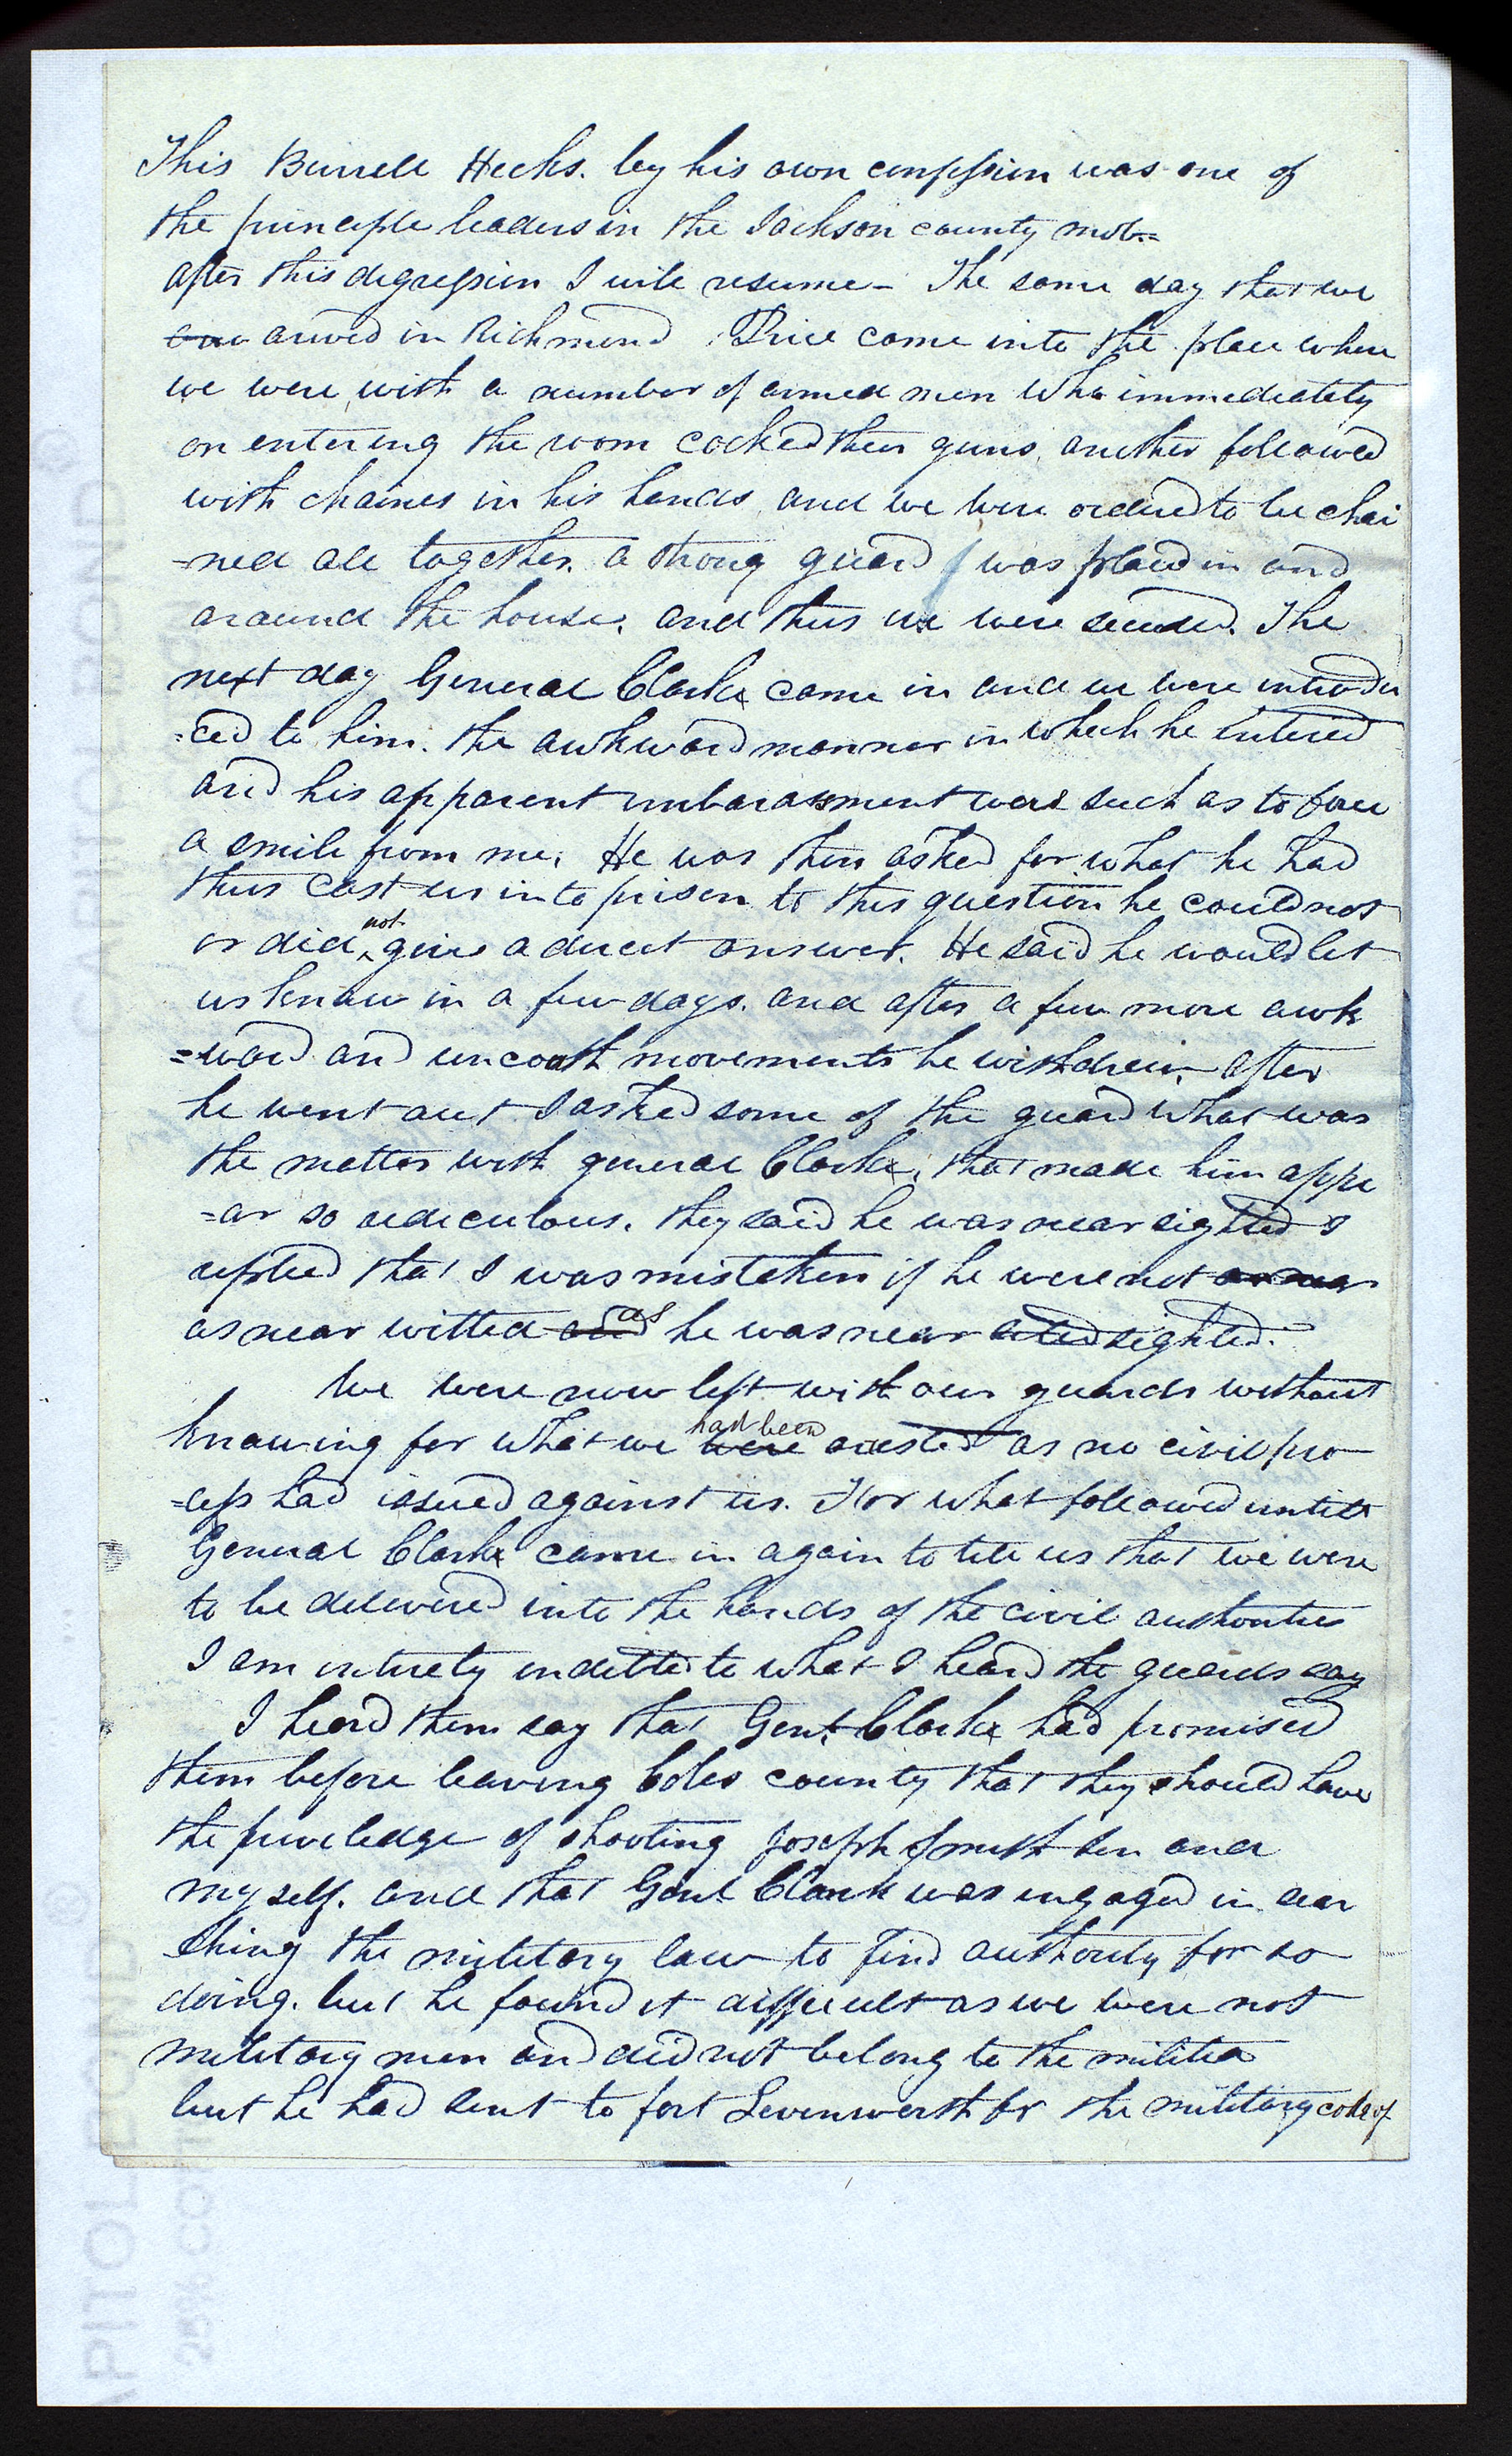 This Burrell Hecks. by his own confession was one of
the principle leaders in the Jackson county mob.=
after this degression I will resume– The same day that we
arived in Richmond Price came into the place where
we were, with a number of armed men who immediately
on entering the room cocked their guns, another followed
with chaines in his hands, and we were ordered to be chai
-ned all together. a strong guard was placed in and
around the house, and thus we were secured. The
next day General Clark came in and we were introdu
=ced to him. the awkward manner in which he entered
and his apparent imbarassment were such as to force
a smile from me. He was then asked for what he had
thus cast us into prison to this question he could not
or did not give a direct answer. He said he would let
us know in a few days. and after a few more awk
=ward and uncouth movements he withdrew, after
he went out I asked some of the guard what was
the matter with general Clark, that made him appe
=ar so rediculous. they said he was near sighted I
replied that I was mistaken if he were not
as near witted as he was near sighted.
We were now left with our guards without
knowing for what we had been were arested as no civil pro
=cess had issued against us. For what followed untill
General Clark came in again to tell us that we were
to be delivered into the hands of the civil authorities
I am intirely indetted to what I heard the guards say
I heard them say that Genl. Clark had promised
them before leaving Coles county that they should have
the priveledge of shooting Joseph Smith Sen and
myself. and that Genl Clark was ingaged in sear
ching the military law to find authority for so
doing. but he found it difficult as we were not
military men and did not belong to the militia
but he had sent to fort Levenworth for the military code of